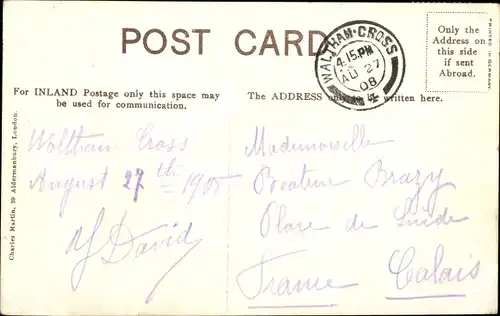 POST CARD
WALTHAM·CROSS
4.15 PM
AU 27
08
Only the
Address on
this side
if sent
Abroad.
PRINTED IN GERMANY.
For INLAND Postage only this space may
be used for communication.
The ADDRESS only to be written here.
Charles Martin, 39 Aldermanbury, London.
Waltham Cross
August 27th 190
David
Mademoiselle
Brazy
Place de Suède
France Calais